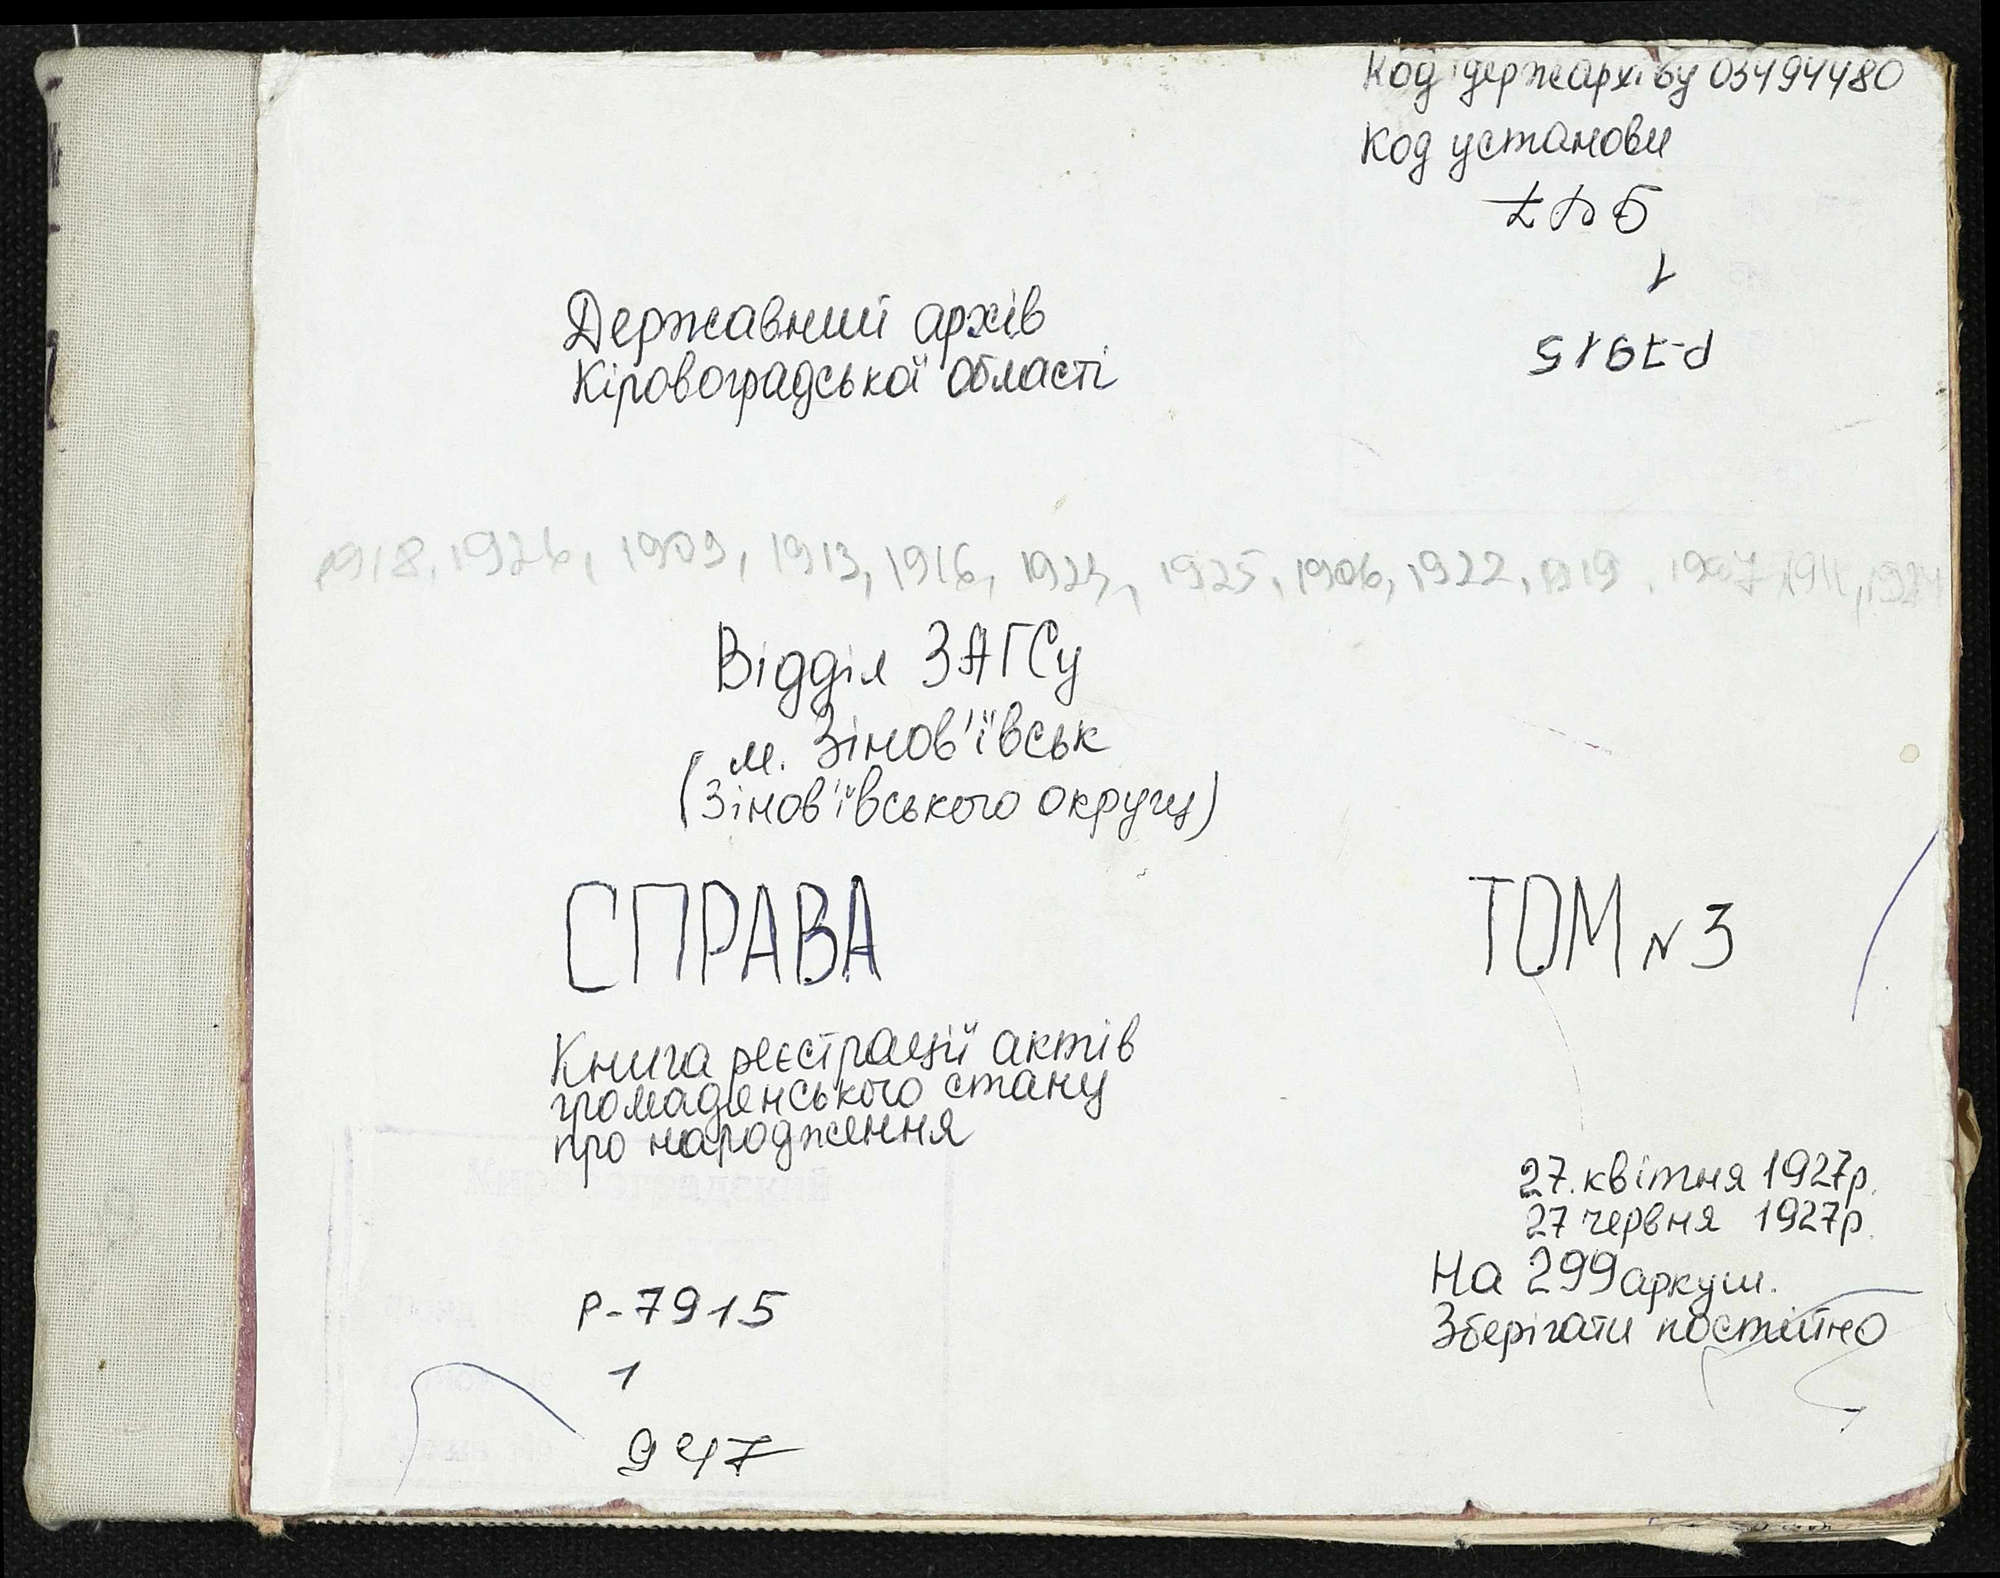 Код держархіву 03494480
Код установи
947
1
Р-7915
Державний архів
Кіровоградської області
1918, 1926, 1909, 1913, 1916, 1925, 1906, 1922, 1919, 1907
Відділ ЗАГСу
м. Зінов'ївськ
(Зінов'ївського округу)
СПРАВА
ТОМ N 3
Книга реєстрації актів
громадянського стану
про народження
27. квітня 1927р.
27 червня 1927р.
На 299 аркуш.
Зберігати постійно
Р-7915
1
947